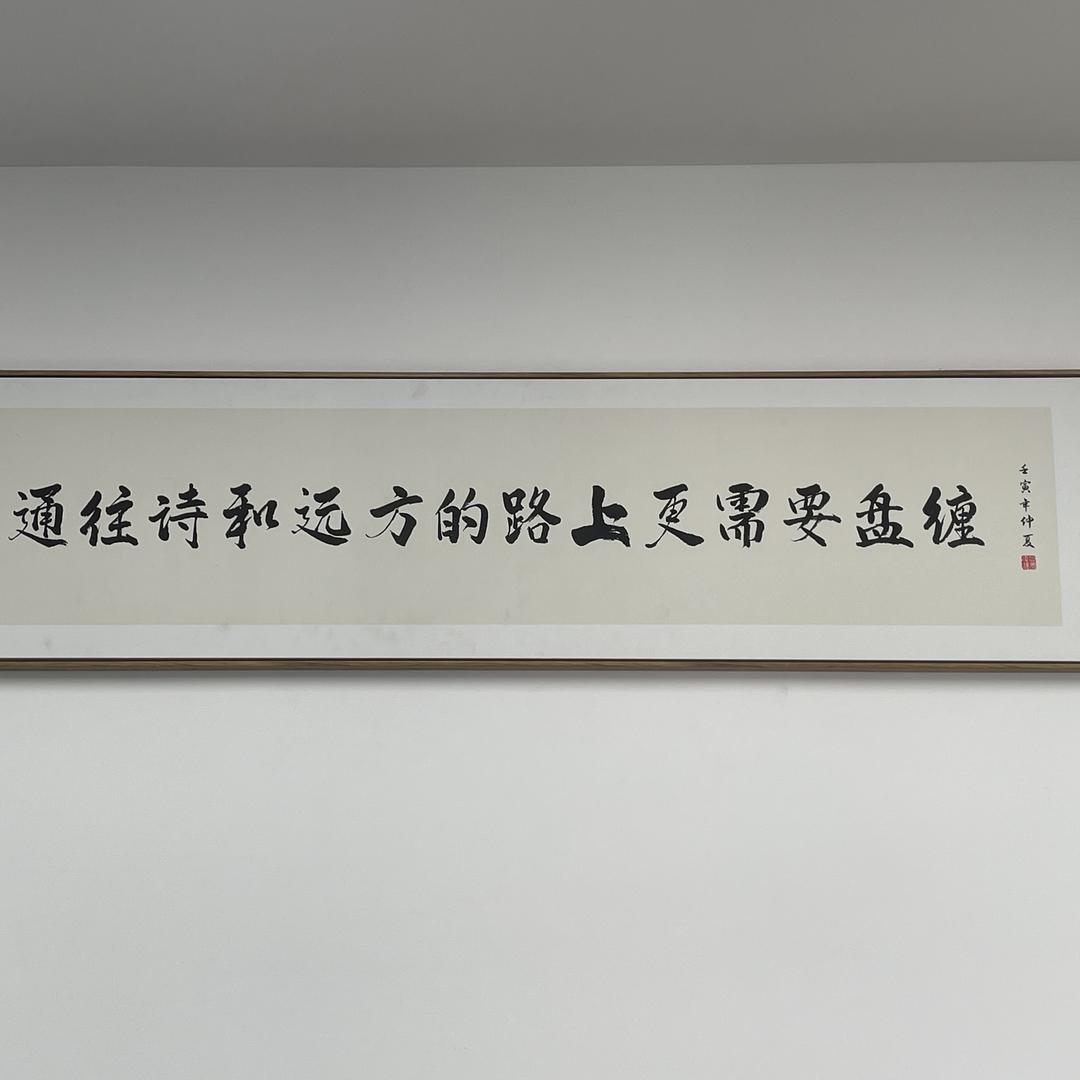 通往诗和远方的路上更需要盘缠
壬寅年仲夏